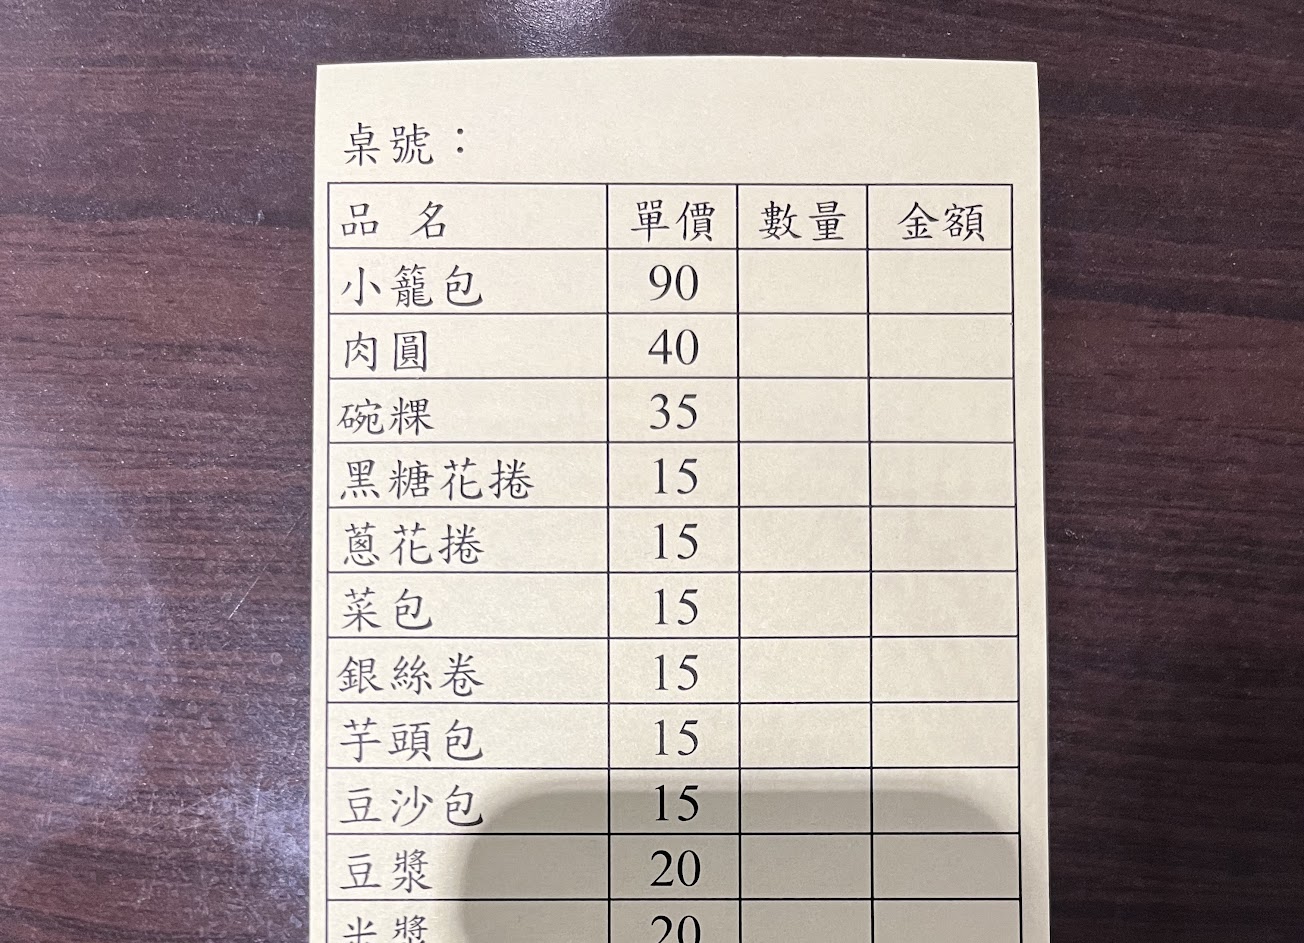 桌號：
品 名 單價 數量 金額
小籠包 90
肉圓 40
碗粿 35
黑糖花捲 15
蔥花捲 15
菜包 15
銀絲卷 15
芋頭包 15
豆沙包 15
豆漿 20
米漿 20